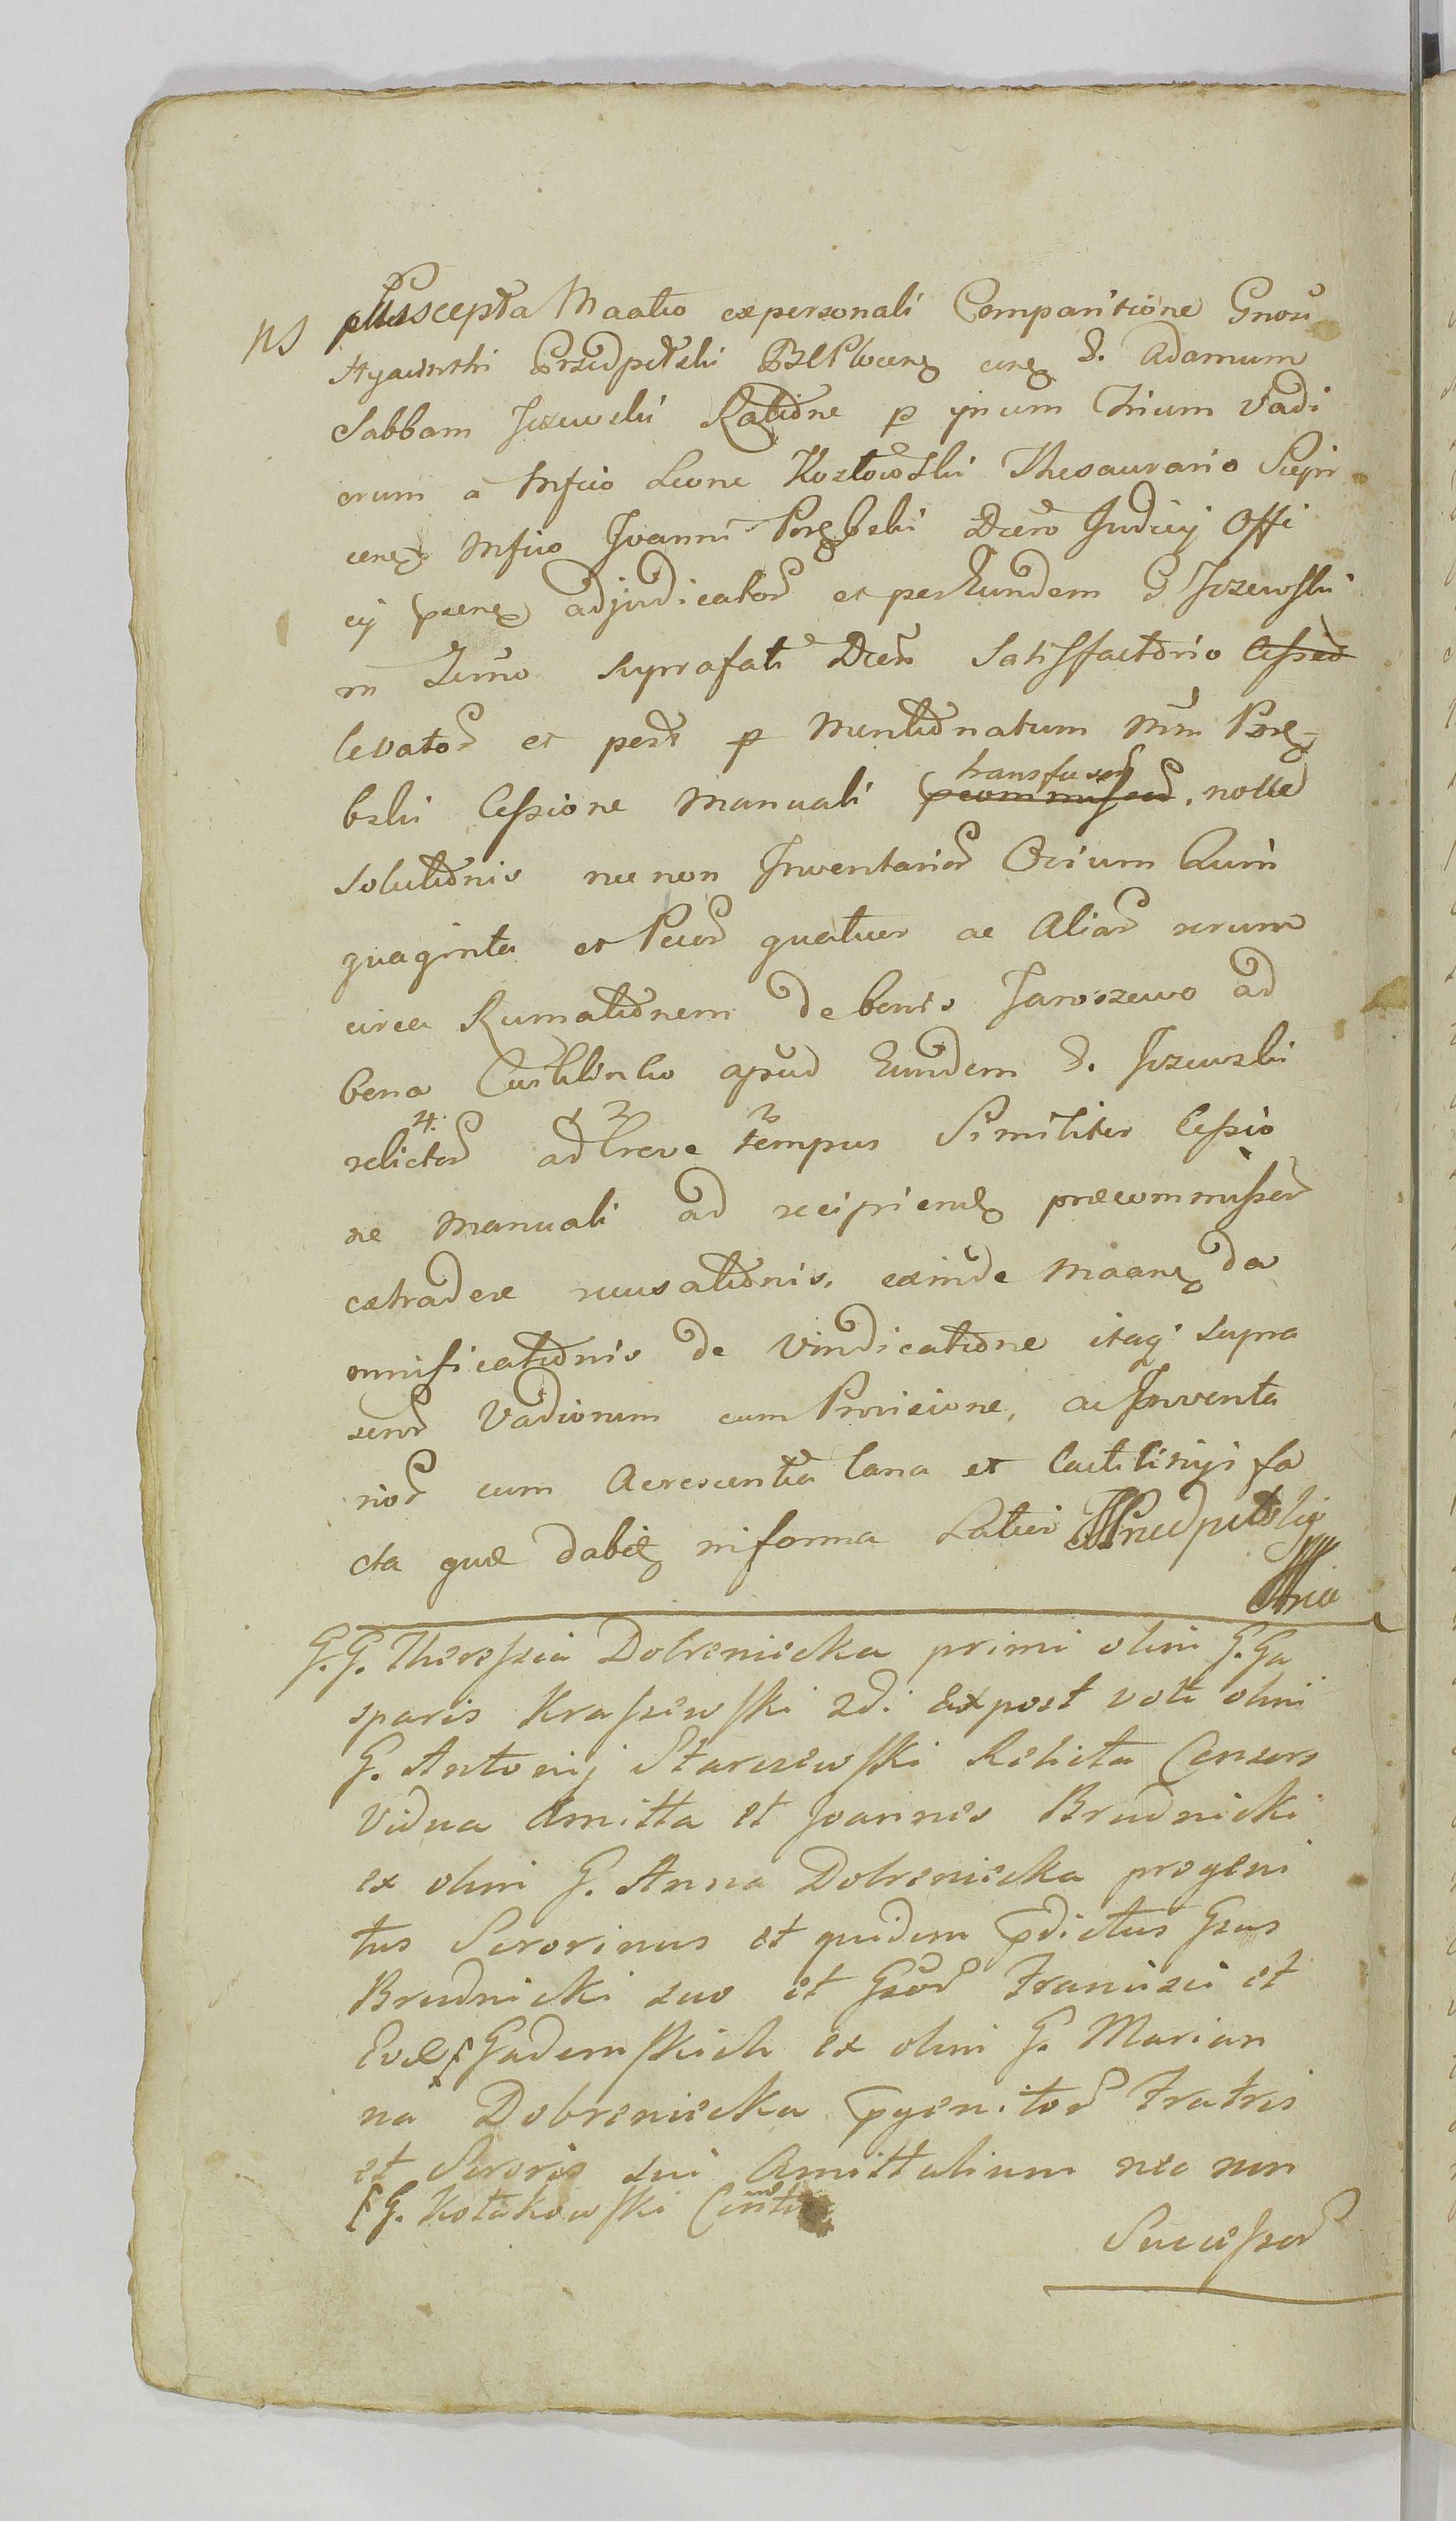 NS Suscepta Maātio ex personali Comparitione Gnosi
Hyacinthi Przedpełski BSCPlocen̄ cen̄ G. Adamum
Sabbam Jezewski Ratiõne p ipsum trium Vadi
orum a Mfico Leone Kozłowski Thesaurario Sierp
cen̄ Mfico Joanni Porębski Dcreto Judicij Offi
cij pcen̄ adjudicator̄ et per Eundem G Jezewski
in termo suprafati Dcreti Satisfactorio Cessed
levator̄ et post p Mentiõnatum Mm Porę
bski Cessione Manuali transfusor̄ pcommissor̄. nolle
solutiõnis nec non Inventarior̄ Ovium Quin
quaginta et Pecor̄ quatuor ac Aliar̄ rerum
circa Rumatiõnem de bonis Jaroszewo ad
bona apud Eundem G. Jezewski
relictor̄ 4. ad breve tempus Similiter Cessio
ne Manuali ad recipiend̄ præcommissor̄
extradere recusatiõnis, exinde Maan̄ da
mnificatiõnis de Vindicatiõne itaq supra
scrior̄ Vadiorum cum Provisione, ac Inventa
rior̄ cum Acrescentia Lana et Lacticinijs fa
cta quæ dabit̄ in forma Latiori HPrzedpełski
Mia
G. G. Theressia Dobreniecka primi olim G. Ga
sparis Krassewski 2di Expost voti olim
G. Antonij Starczewski Relicta Consors
Vidua Amitta et Joannes Brudnicki
ex olim G. Anna Dobreniecka progeni
tus Sororinus et quidem pdictus Gsus
Brudnicki suo et Gsor̄ Francisci et
Evæ Gademskich ex olim G. Marian
na Dobreniecka pgenitor̄ Fratris
et Sororis sui Amittalium nec non
G. Kołakowski
Successor̄